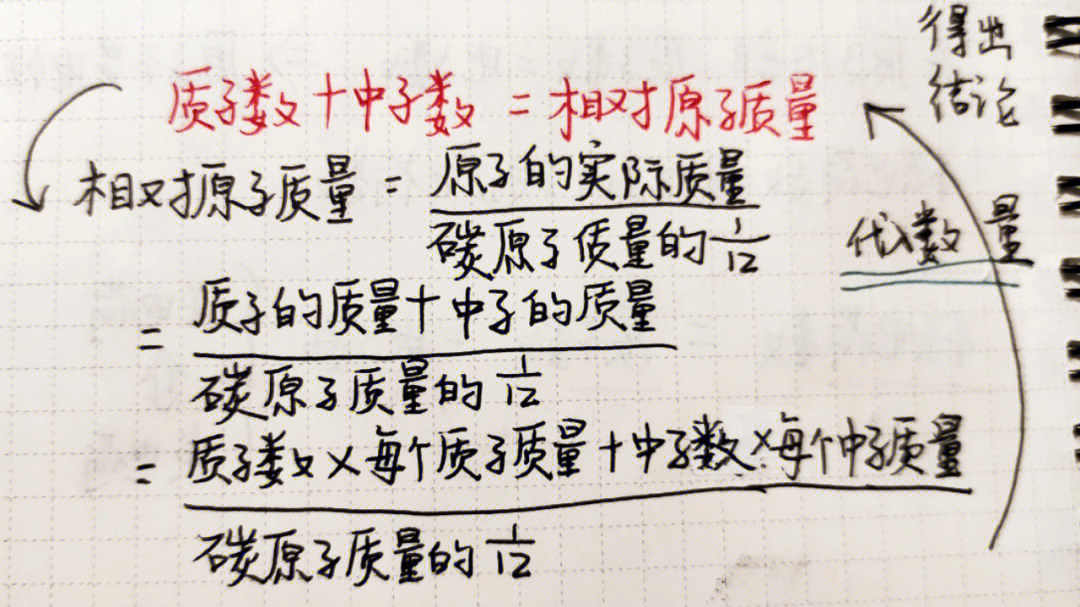 得出
结论
质子数+中子数=相对原子质量
相对原子质量=原子的实际质量
碳原子质量的1/12
代入数量
=质子的质量+中子的质量
碳原子质量的1/12
=质子数×每个质子质量+中子数×每个中子质量
碳原子质量的1/12